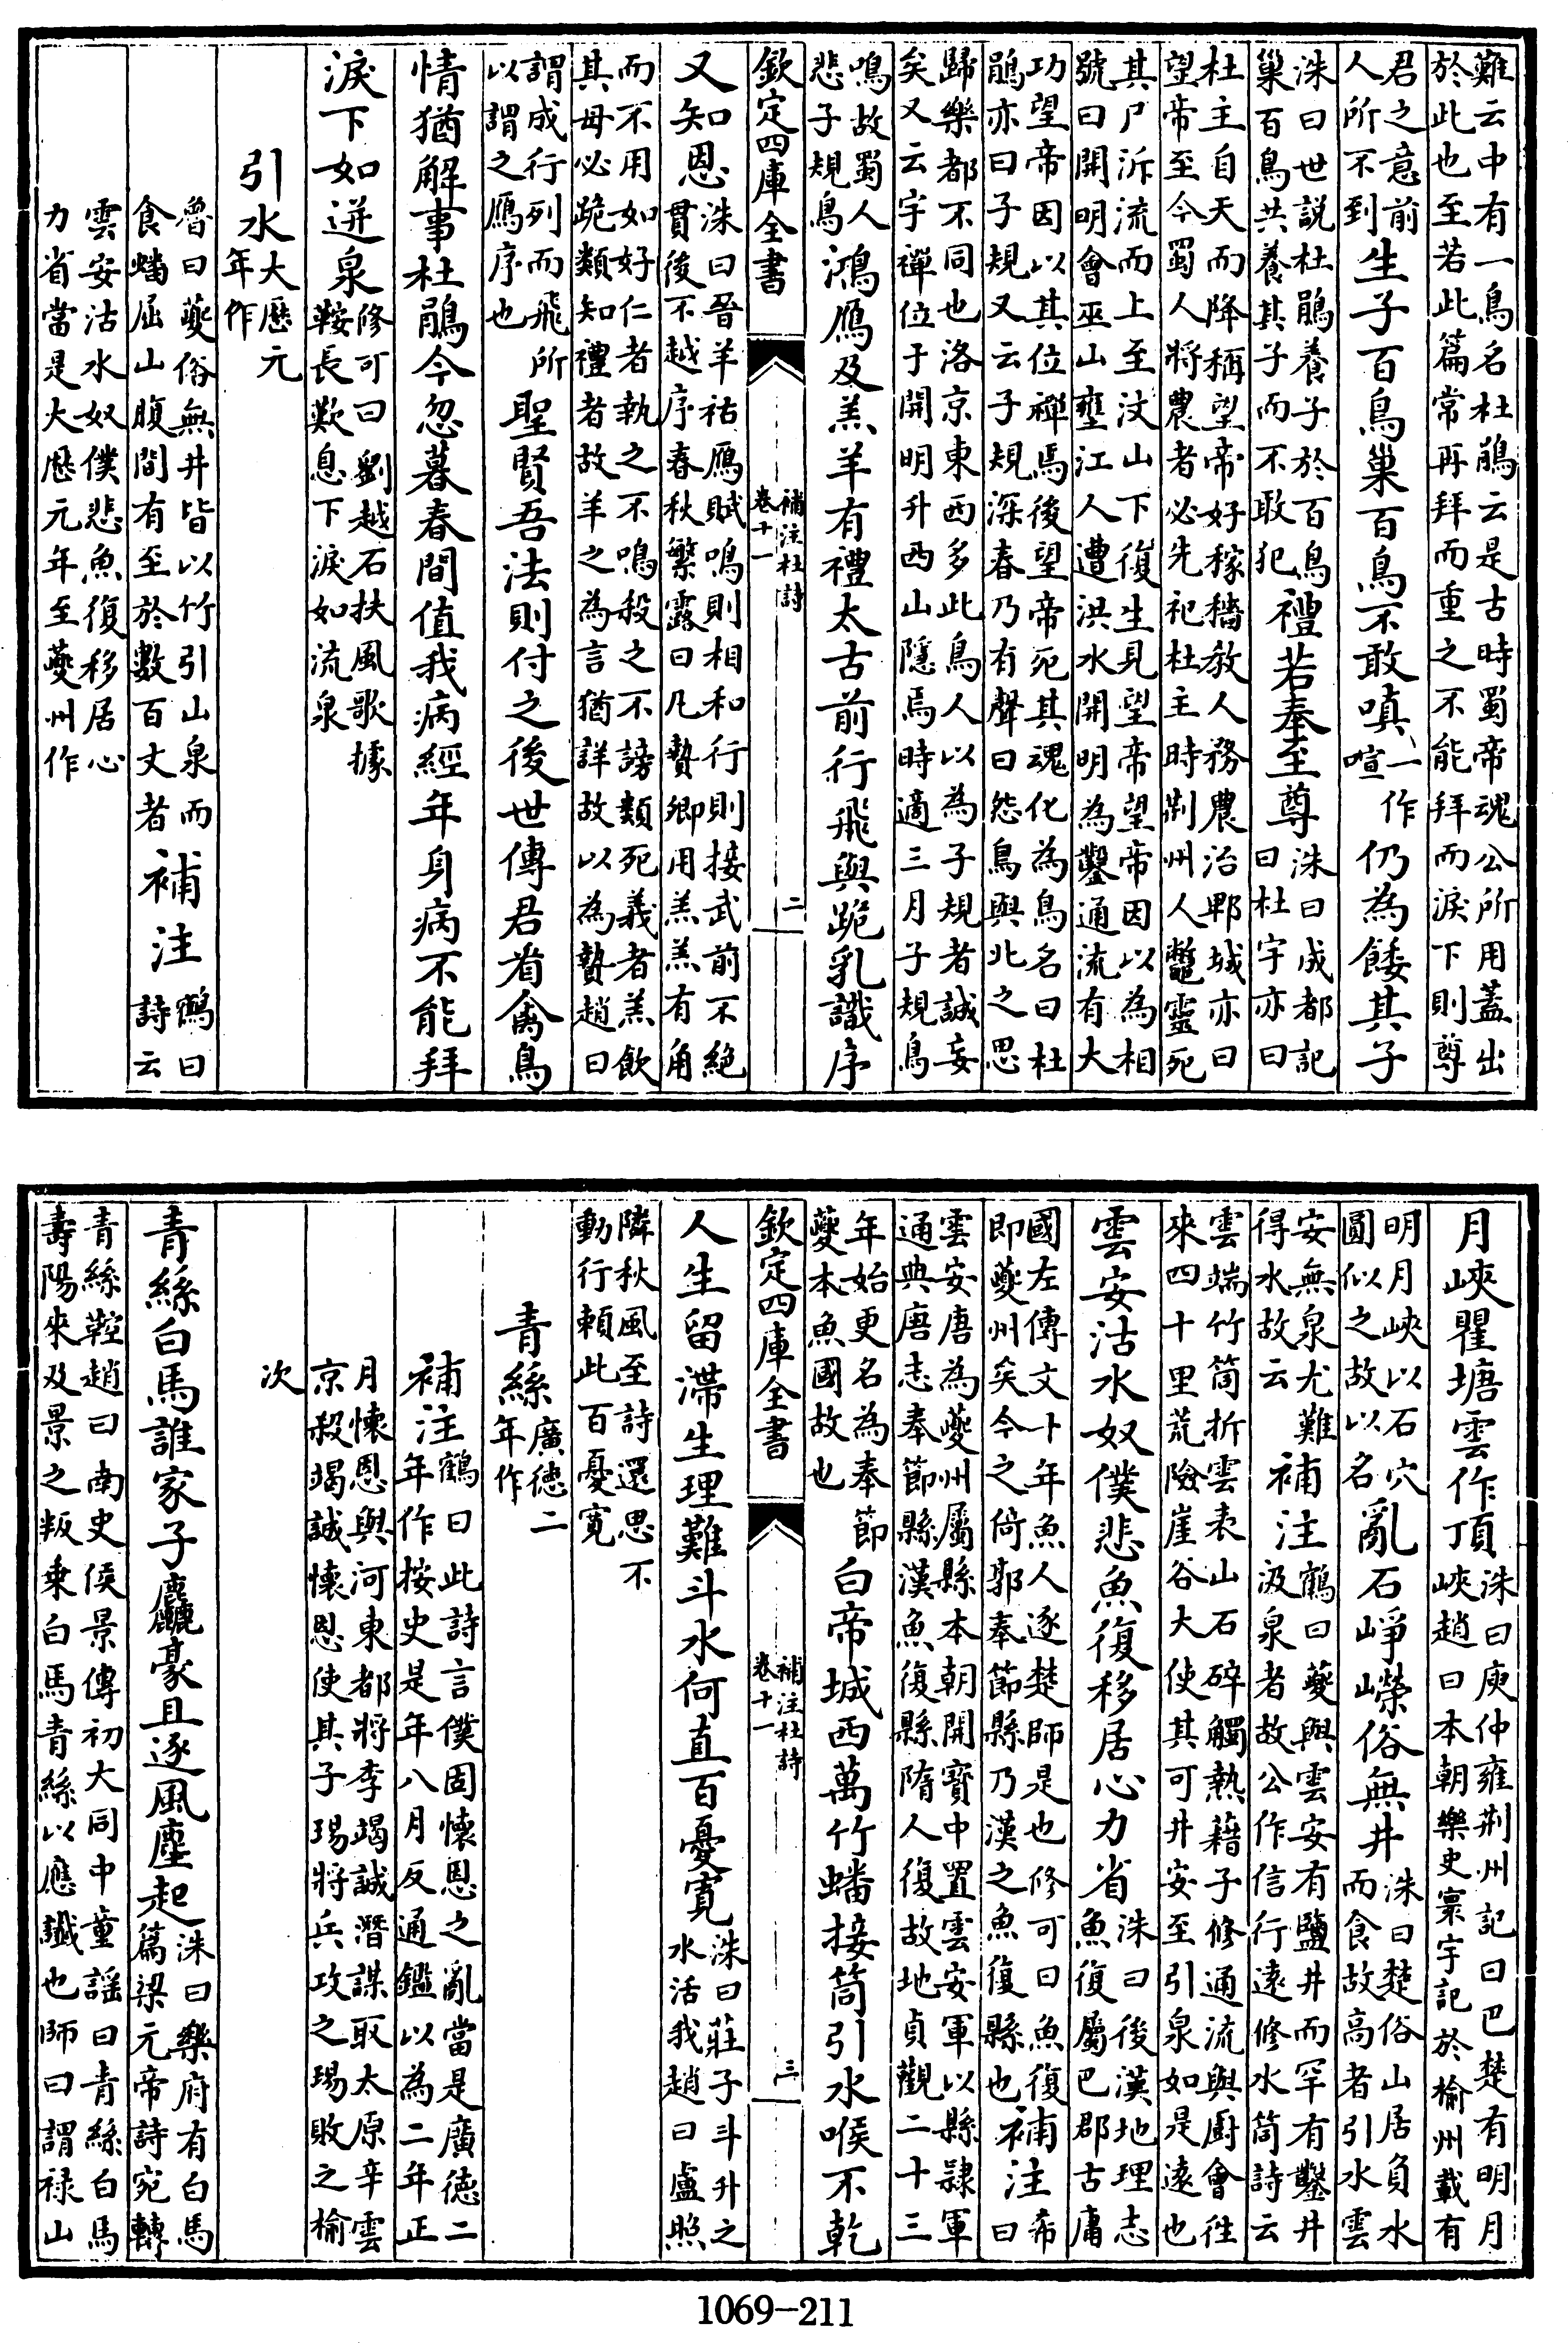 難云中有一鳥名杜鵑云是古時蜀帝魂公所用蓋出
於此也至若此篇常再拜而重之不能拜而淚下則尊
君之意前人所不到生子百鳥巢百鳥不敢嗔一作喧仍為餧其子
洙曰世説杜鵑養子於百鳥巢百鳥共養其子而不敢犯禮若奉至尊洙曰成都記曰杜宇亦曰
杜主自天而降稱望帝好稼穡教人務農治郫城亦曰
望帝至今蜀人將農者必先祀杜主時荆州人鼈靈死
其尸泝流而上至汶山下復生見望帝望帝因以為相
號曰開明會巫山壅江人遭洪水開明為鑿通流有大
功望帝因以其位禪焉後望帝死其魂化為鳥名曰杜
鵑亦曰子規又云子規深春乃有聲曰怨鳥與北之思
歸樂都不同也洛京東西多此鳥人以為子規者誠妄
矣又云宇禪位于開明升西山隱焉時適三月子規鳥
鳴故蜀人悲子規鳥鴻鴈及羔羊有禮太古前行飛與跪乳識序
欽定四庫全書
補注杜詩
卷十一
二
又知恩洙曰晉羊祜鴈賦鳴則相和行則接武前不絕貫後不越序春秋繁露曰凡贄卿用羔羔有角
而不用如好仁者執之不鳴殺之不謗類死義者羔飲
其母必跪類知禮者故羊之為言猶詳故以為贄趙曰
謂成行列而飛所以謂之鴈序也聖賢吾法則付之後世傳君㸔禽鳥
情猶解事杜鵑今忽暮春間值我病經年身病不能拜
淚下如迸泉修可曰劉越石扶風歌據鞍長歎息下淚如流泉
引水大歷元年作
魯曰夔俗無井皆以竹引山泉而食蟠屈山腹間有至於數百丈者補注鶴曰詩云
雲安沽水奴僕悲魚復移居心
力省當是大歷元年至夔州作
月峽瞿塘雲作頂洙曰庾仲雍荆州記曰巴楚有明月峽趙曰本朝樂史寰宇記於榆州載有
明月峽以石穴圓似之故以名亂石崢嶸俗無井洙曰楚俗山居負水而食故高者引水雲
安無泉尤難得水故云補注鶴曰夔與雲安有鹽井而罕有鑿井汲泉者故公作信行遠修水筒詩云
雲端竹筒折雲表山石碎觸熱藉子修通流與厨會往
來四十里荒險崖谷大使其可井安至引泉如是遠也
雲安沽水奴僕悲魚復移居心力省洙曰後漢地理志魚復屬巴郡古庸
國左傳文十年魚人逐楚師是也修可曰魚復即夔州矣今之倚郭奉節縣乃漢之魚復縣也補注希曰
雲安唐為夔州屬縣本朝開寶中置雲安軍以縣隷軍
通典唐志奉節縣漢魚復縣隋人復故地貞觀二十三
年始更名為奉節夔本魚國故也白帝城西萬竹蟠接筒引水喉不乾
欽定四庫全書
補注杜詩
卷十一
三
人生留滯生理難斗水何直百憂寛洙曰莊子斗升之水活我趙曰盧照
隣秋風至詩還思不
動行頼此百憂寛
青絲廣德二年作
補注鶴曰此詩言僕固懷恩之亂當是廣德二年作按史是年八月反通鑑以為二年正
月懷恩與河東都將李竭誠潛謀取太原辛雲
京殺竭誠懷恩使其子瑒將兵攻之瑒敗之榆
次
青絲白馬誰家子麤豪且逐風塵起洙曰樂府有白馬篇梁元帝詩宛轉
青絲鞚趙曰南史侯景傳初大同中童謡曰青絲白馬
壽陽來及景之叛乗白馬青絲以應讖也師曰謂禄山
1069-211